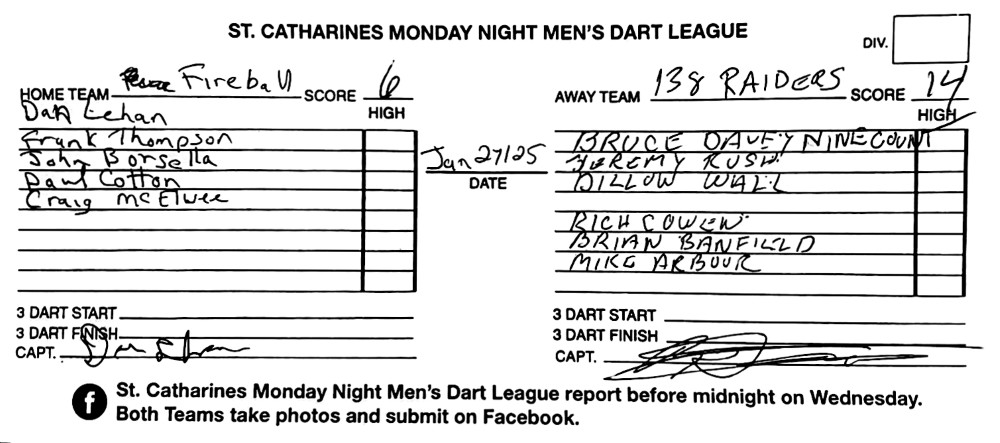 ST. CATHARINES MONDAY NIGHT MEN'S DART LEAGUE
DIV.
HOME TEAM Fireball SCORE 6
HIGH
AWAY TEAM 138 RAIDERS SCORE 14
HIGH
Dan Lehan
Frank Thompson
John Borsella
Paul Cotton
Craig McElwee
Jan 27/25
DATE
BRUCE DAVEY NINECOUNT
JEREMY RUSH
DILLOW WALL
RICH COWEN
BRIAN BANFIELD
MIKE ARBOUR
3 DART START
3 DART FINISH
CAPT.
3 DART START
3 DART FINISH
CAPT.
f St. Catharines Monday Night Men's Dart League report before midnight on Wednesday.
Both Teams take photos and submit on Facebook.